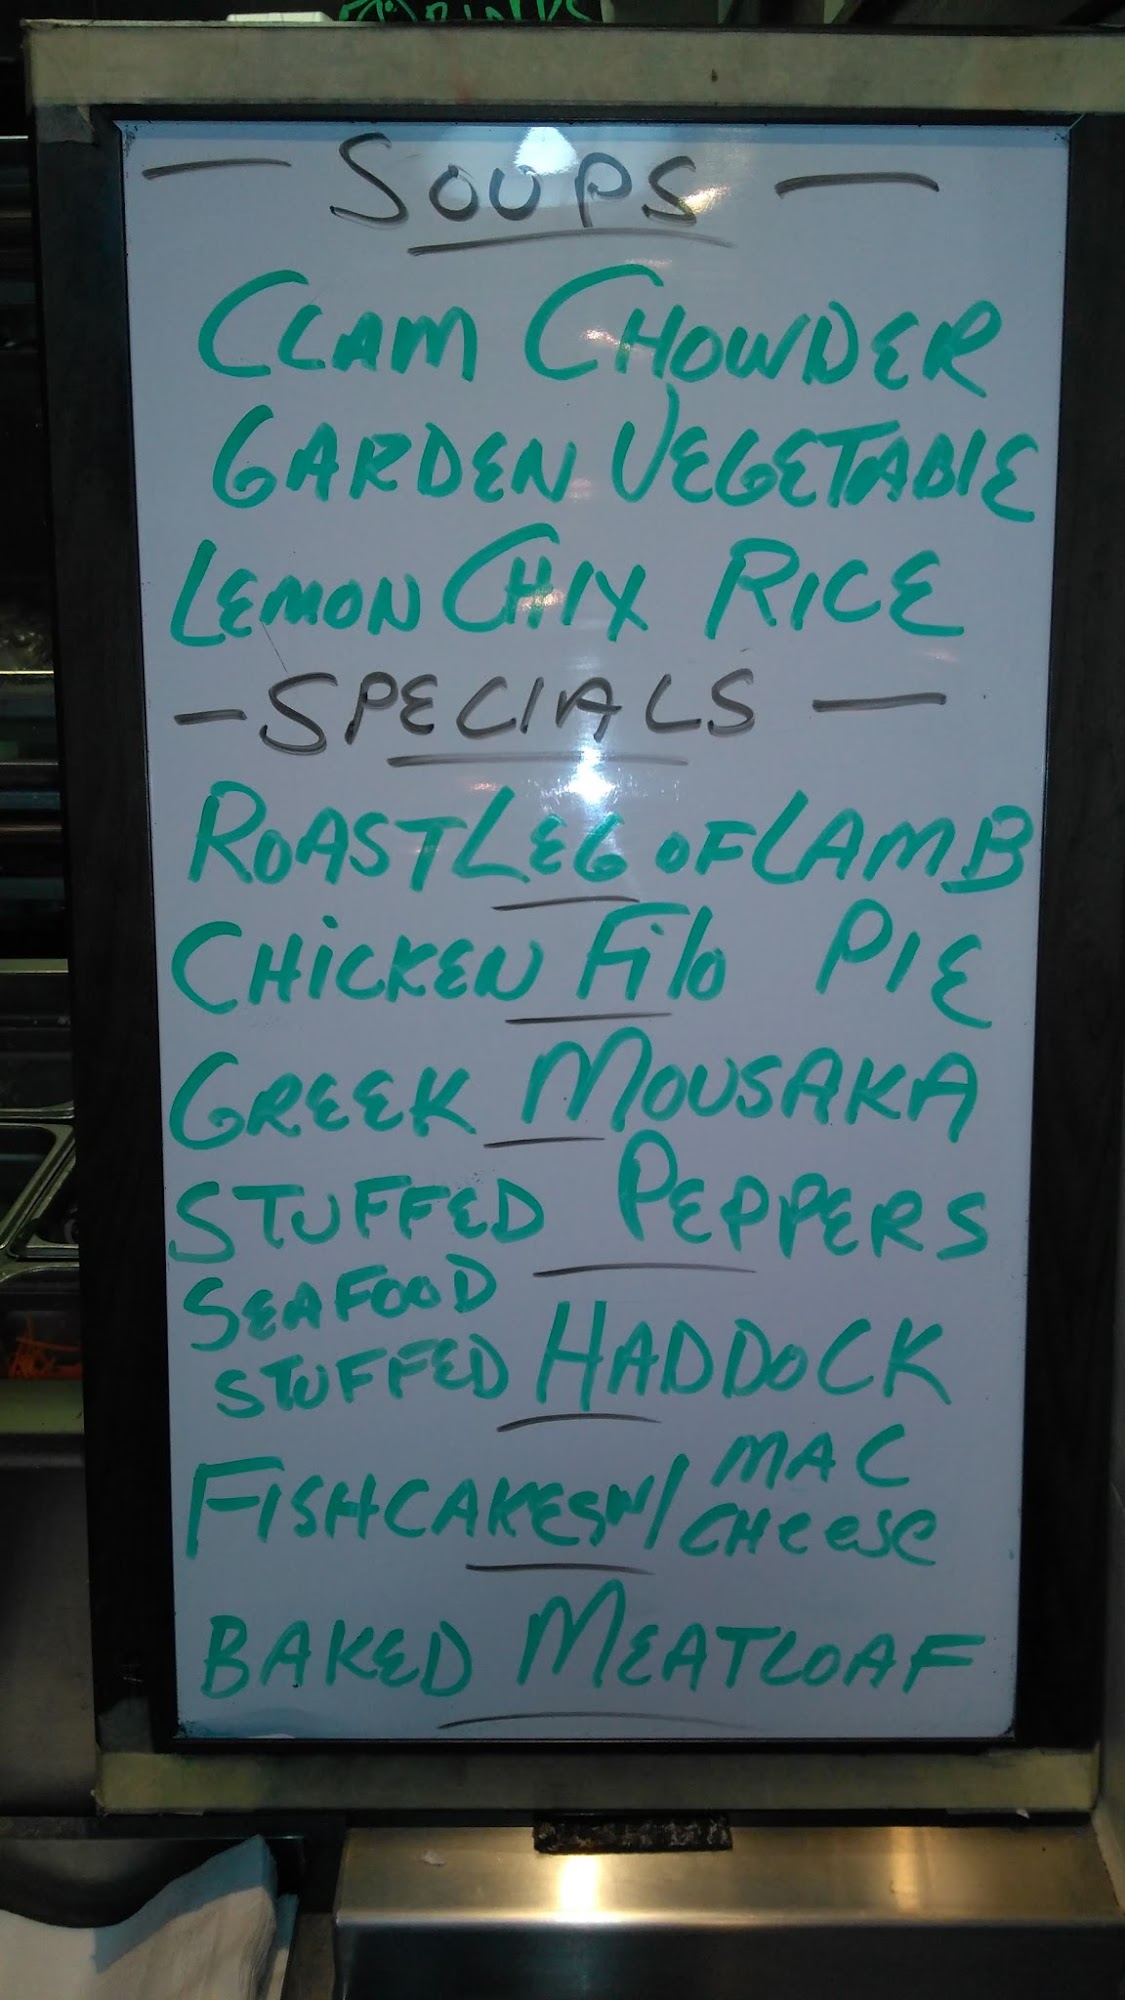 DRINKS
— SOUPS —
CLAM CHOWDER
GARDEN VEGETABLE
LEMON CHIX RICE
— SPECIALS —
ROAST LEG OF LAMB
CHICKEN Filo PIE
GREEK MOUSAKA
STUFFED PEPPERS
SEAFOOD
STUFFED HADDOCK
FISHCAKES W/ MAC
CHeese
BAKED MEATLOAF